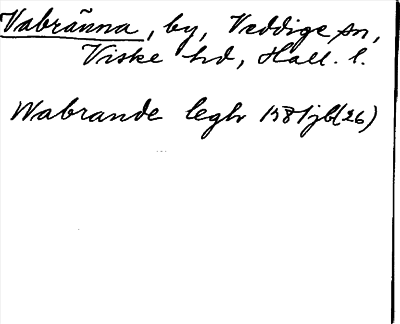 Vabränna, by, Veddige sn,
Viske hd, Hall. l.
Wabrande legh 1581 jb(26)